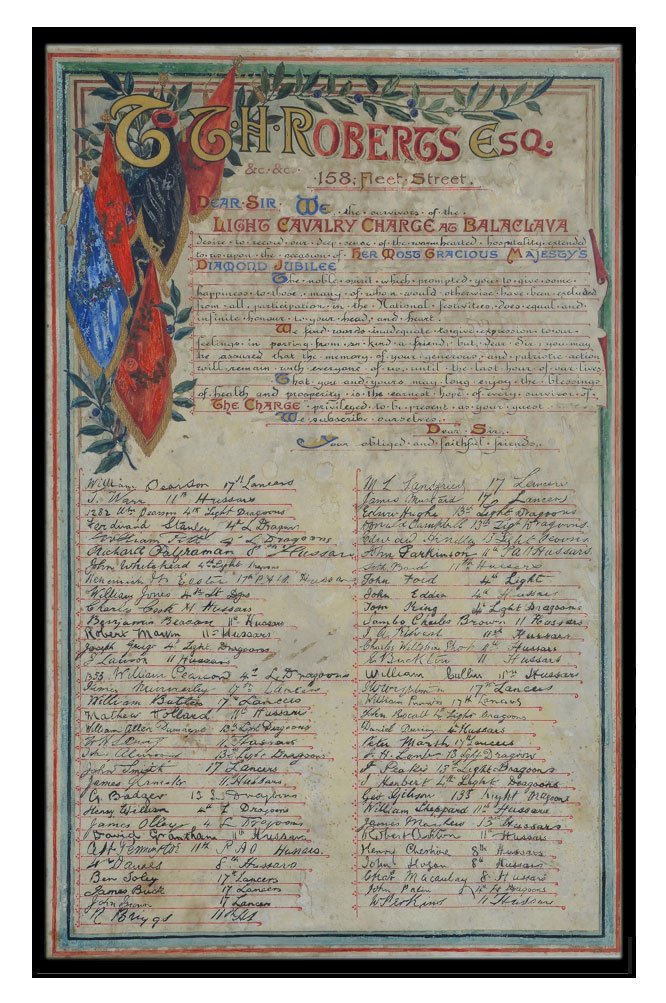 T. H. ROBERTS ESQ.
&c. &c. 158, Fleet Street.
DEAR SIR. WE the survivors of the
LIGHT CAVALRY CHARGE AT BALACLAVA
desire to record our deep sense of the warmhearted hospitality extended
to us upon the occasion of HER MOST GRACIOUS MAJESTY'S
DIAMOND JUBILEE
The noble spirit which prompted you to give some
happiness to those, many of whom would otherwise have been excluded
from all participation in the National festivities, does equal and
infinite honour to your head, and heart.
We find words inadequate to give expression to our
feelings in parting from so kind a friend, but, dear Sir, you may
be assured that the memory of your generous, and patriotic action
will remain with everyone of us, until the last hour of our lives.
That you and yours may long enjoy the blessings
of health and prosperity is the earnest hope of every survivor of
THE CHARGE privileged to be present as your guest.
We subscribe ourselves.
Dear Sir.
Your obliged and faithful friends.
William Pearson 17th Lancers
J. Warr 11th Hussars
1282 Wm Pearson 4th Light Dragoons
Ferdinand Stanley 4th L Dragns
William 4 L Dragoons
Richard Palframan 8th Hussars
John Whitehead 4th Light
William Jones 4th Lt Dgs
Hussars
Benjamin Beacon 11th Hussars
Robert Martin 11th Hussars
Joseph Grigg 4th Light Dragoons
Lawson 11 Hussars
1353 William Pearson 4th L. Dragoons
James 17th Lancers
William Butler 17th Lancers
Mathew Hussars
William Allen 13th Light Dragoons
Hussars
13th Light Dragoons
John Smith 17 Lancers
James Hussars
G. Badger 13 L Dragoons
Henry William 4th L Dragoons
James Olley 4 L Dragoons
David Grantham 11th Hussars
11th P.A.O. Hussars
Davies 8th Hussars
Ben Soley 17th Lancers
James Buck 17 Lancers
John Brown 17 Lancers
R Briggs
17 Lancers
James Mustard 17 Lancers
Edwin Hughes 13th Light Dragoons
Donald Campbell 13th Light Dragoons
13 Light
John Parkinson 11th P.A.O. Hussars
Seth Bond 11th Hussars
John Ford 4th Light
John Edden 4th Hussars
Tom King 4th Light Dragoons
Jambo Charles Brown 11 Hussars
11th Hussars
Charles 11th Hussars
R Buckton 11 Hussars
William Cullen 11th Hussars
17th Lancers
William 17th Lancers
John 4th Light Dragoons
Daniel 4th Hussars
Peter Marsh 17th Lancers
J. H. Lamb 13 Light Dragoon
J. 13th Light Dragoons
J Herbert 4th Light Dragoons
Geo Gibson 13th Light Dragoons
William Sheppard 11th Hussars
James 13th Hussars
Robert Ashton 11 Hussars
Henry 8th Hussars
John Hogan 8th Hussars
Macaulay 8 Hussars
John Palin 4th Lt Dragoons
W Perkins 11 Hussars